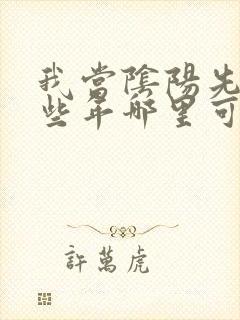 我當陰陽先
些年哪里可
許萬虎